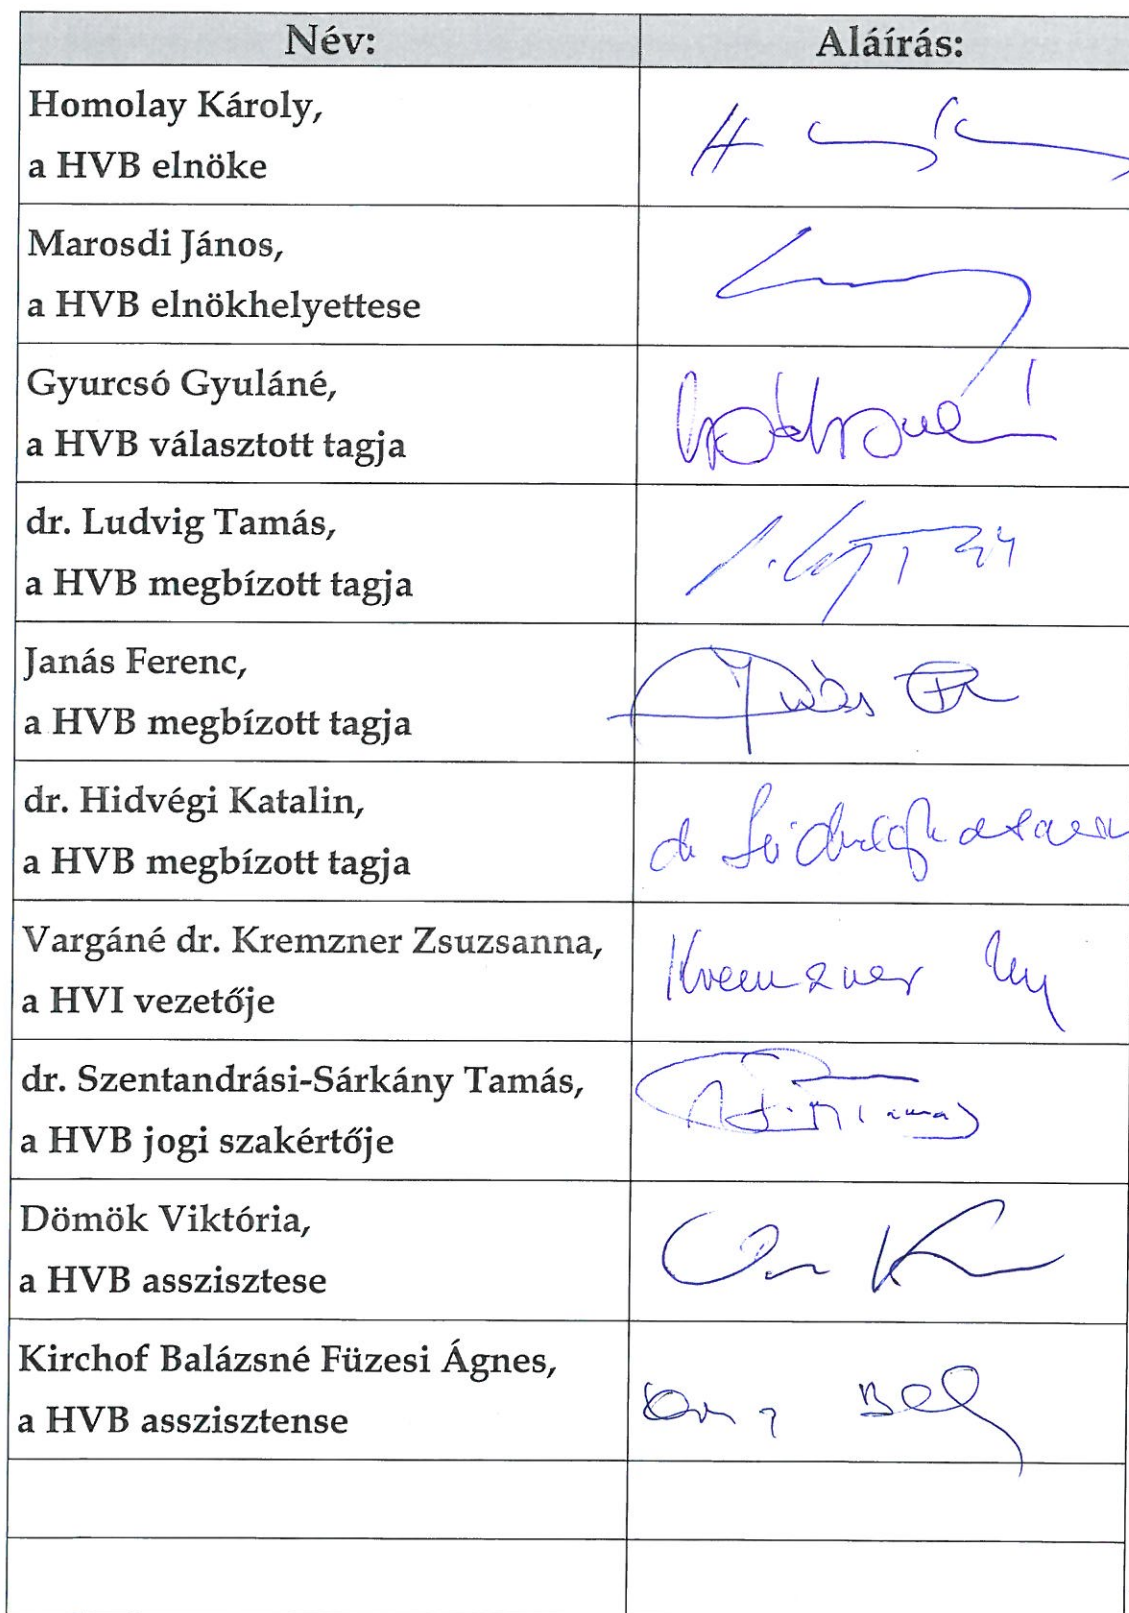 Név: Aláírás:
Homolay Károly,
a HVB elnöke
Marosdi János,
a HVB elnökhelyettese
Gyurcsó Gyuláné,
a HVB választott tagja
dr. Ludvig Tamás,
a HVB megbízott tagja
Janás Ferenc,
a HVB megbízott tagja
dr. Hidvégi Katalin,
a HVB megbízott tagja
Vargáné dr. Kremzner Zsuzsanna,
a HVI vezetője
Kremzner
dr. Szentandrási-Sárkány Tamás,
a HVB jogi szakértője
Dömök Viktória,
a HVB asszisztese
Kirchof Balázsné Füzesi Ágnes,
a HVB asszisztense